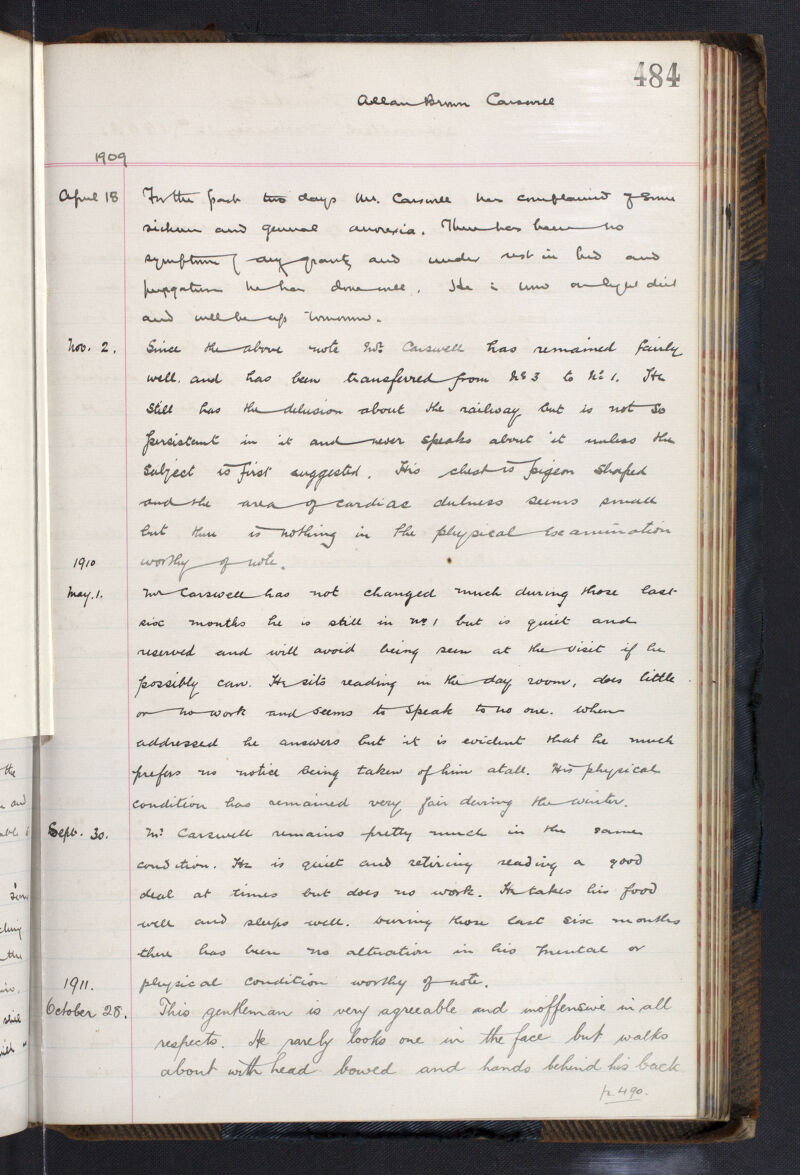 484
Allan Brown Carswell
1909
April 18 For the past two days Mr. Carswell has complained of some
sickness and general anorexia. There has been no
symptom of any gravity and under rest in bed and
purgation he has done well. He is now on light diet
and will be up tomorrow.
Nov. 2. Since the above note Mr. Carswell has remained fairly
well. and has been transferred from No 3 to No 1. He
still has the delusion about the railway but is not so
persistent in it and never speaks about it unless the
subject is first suggested. His chest is pigeon shaped
and the area of cardiac dulness seems small
but there is nothing in the physical examination
1910 worthy of note.
May. 1. Mr Carswell has not changed much during those last
six months he is still in No 1 but is quiet and
reserved and will avoid being seen at the visit if he
possibly can. He sits reading in the day room, does little
or no work and seems to speak to no one. When
addressed he answers but it is evident that he much
prefers no notice being taken of him at all. His physical
condition has remained very fair during the winter.
Sept. 30. Mr Carswell remains pretty much in the same
condition. He is quiet and retiring reading a good
deal at times but does no work. He takes his food
well and sleeps well. During those last six months
there has been no alteration in his mental or
1911. physical condition worthy of note.
October 28. This gentleman is very agreeable and inoffensive in all
respects. He rarely looks one in the face but walks
about with head bowed and hands behind his back
p. 490.
the
and
still